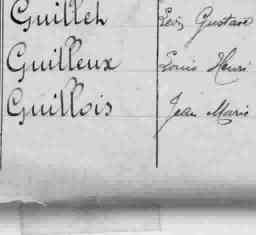 Guillet Léon Gustave
Guilleux Louis Henri
Guillois Jean Marie